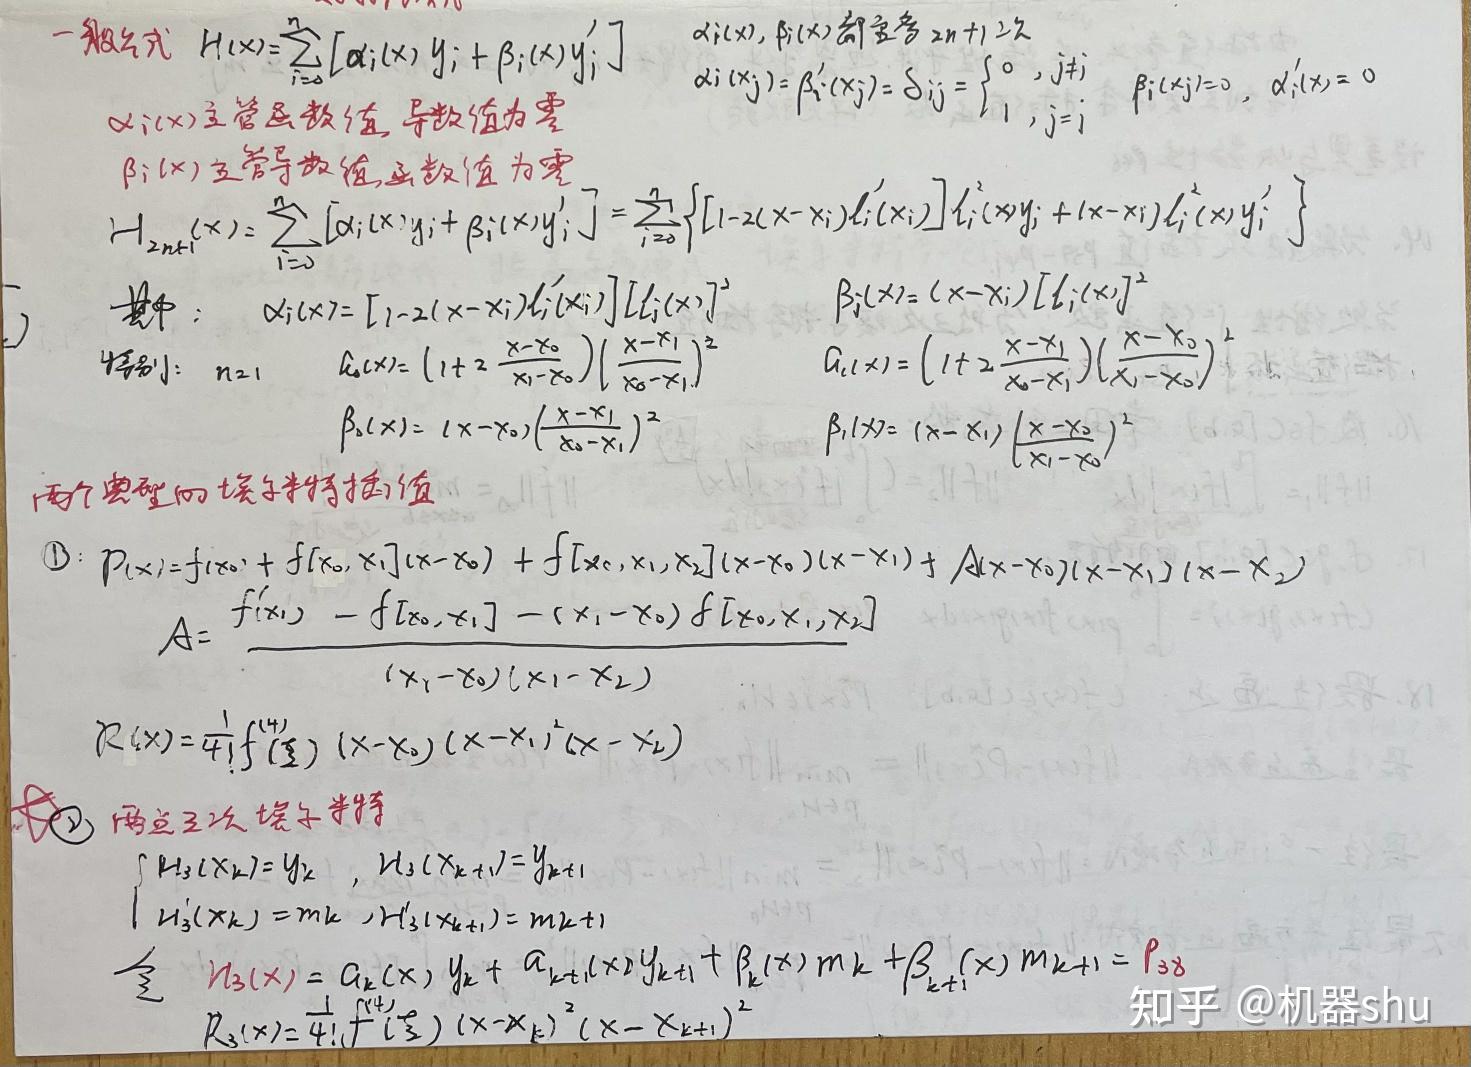 一般公式 H(x)=∑_{i=0}^{n}[α_i(x)y_i+β_i(x)y_i′] α_i(x), β_i(x)都是 2n+1次
α_i(x_j)=β_i′(x_j)=δ_{ij}={0, j≠i; 1, j=i β_i(x_j)=0, α_i′(x)=0
α_i(x)主管函数值,导数值为零
β_i(x)主管导数值,函数值为零
H_{2n+1}(x)=∑_{i=0}^{n}[α_i(x)y_i+β_i(x)y_i′]=∑_{i=0}^{n}{[1-2(x-x_i)l_i′(x_i)]l_i²(x)y_i+(x-x_i)l_i²(x)y_i′}
其中: α_i(x)=[1-2(x-x_i)l_i′(x_i)][l_i(x)]² β_i(x)=(x-x_i)[l_i(x)]²
特别: n=1 a_0(x)=(1+2(x-x_0)/(x_1-x_0))((x-x_1)/(x_0-x_1))² a_1(x)=(1+2(x-x_1)/(x_0-x_1))((x-x_0)/(x_1-x_0))²
β_0(x)=(x-x_0)((x-x_1)/(x_0-x_1))² β_1(x)=(x-x_1)((x-x_0)/(x_1-x_0))²
两个典型的埃尔米特插值
①: P(x)=f(x_0)+f[x_0,x_1](x-x_0)+f[x_0,x_1,x_2](x-x_0)(x-x_1)+A(x-x_0)(x-x_1)(x-x_2)
A=(f′(x_1)-f[x_0,x_1]-(x_1-x_0)f[x_0,x_1,x_2])/((x_1-x_0)(x_1-x_2))
R(x)=1/4! f^{(4)}(ξ)(x-x_0)(x-x_1)²(x-x_2)
② 两点三次埃尔米特
{H_3(x_k)=y_k, H_3(x_{k+1})=y_{k+1}
H_3′(x_k)=m_k, H_3′(x_{k+1})=m_{k+1}
令 H_3(x)=a_k(x)y_k+a_{k+1}(x)y_{k+1}+β_k(x)m_k+β_{k+1}(x)m_{k+1}=P_{38}
R_3(x)=1/4! f^{(4)}(ξ)(x-x_k)²(x-x_{k+1})²
知乎 @机器shu